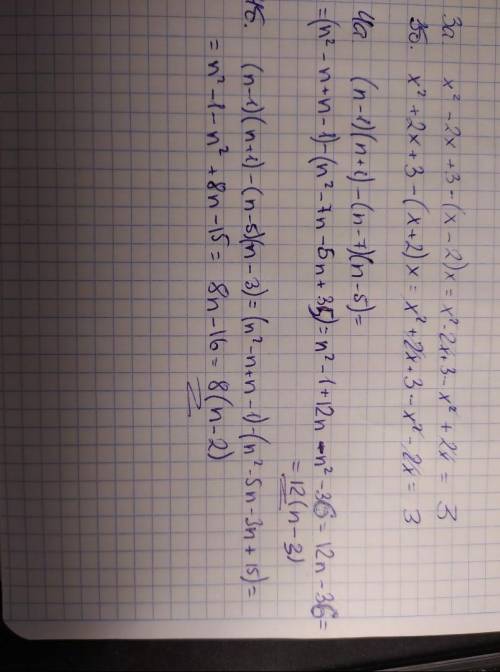 3a x² - 2x + 3 - (x - 2)x = x² - 2x + 3 - x² + 2x = 3
3б. x² + 2x + 3 - (x + 2)x = x² + 2x + 3 - x² - 2x = 3
4a (n-1)(n+1) - (n-7)(n-5) =
= (n² - n + n - 1) - (n² - 7n - 5n + 35) = n² - 1 + 12n - n² - 36 = 12n - 36 =
= 12(n - 3)
4б. (n-1)(n+1) - (n-5)(n-3) = (n² - n + n - 1) - (n² - 5n - 3n + 15) =
= n² - 1 - n² + 8n - 15 = 8n - 16 = 8(n - 2)